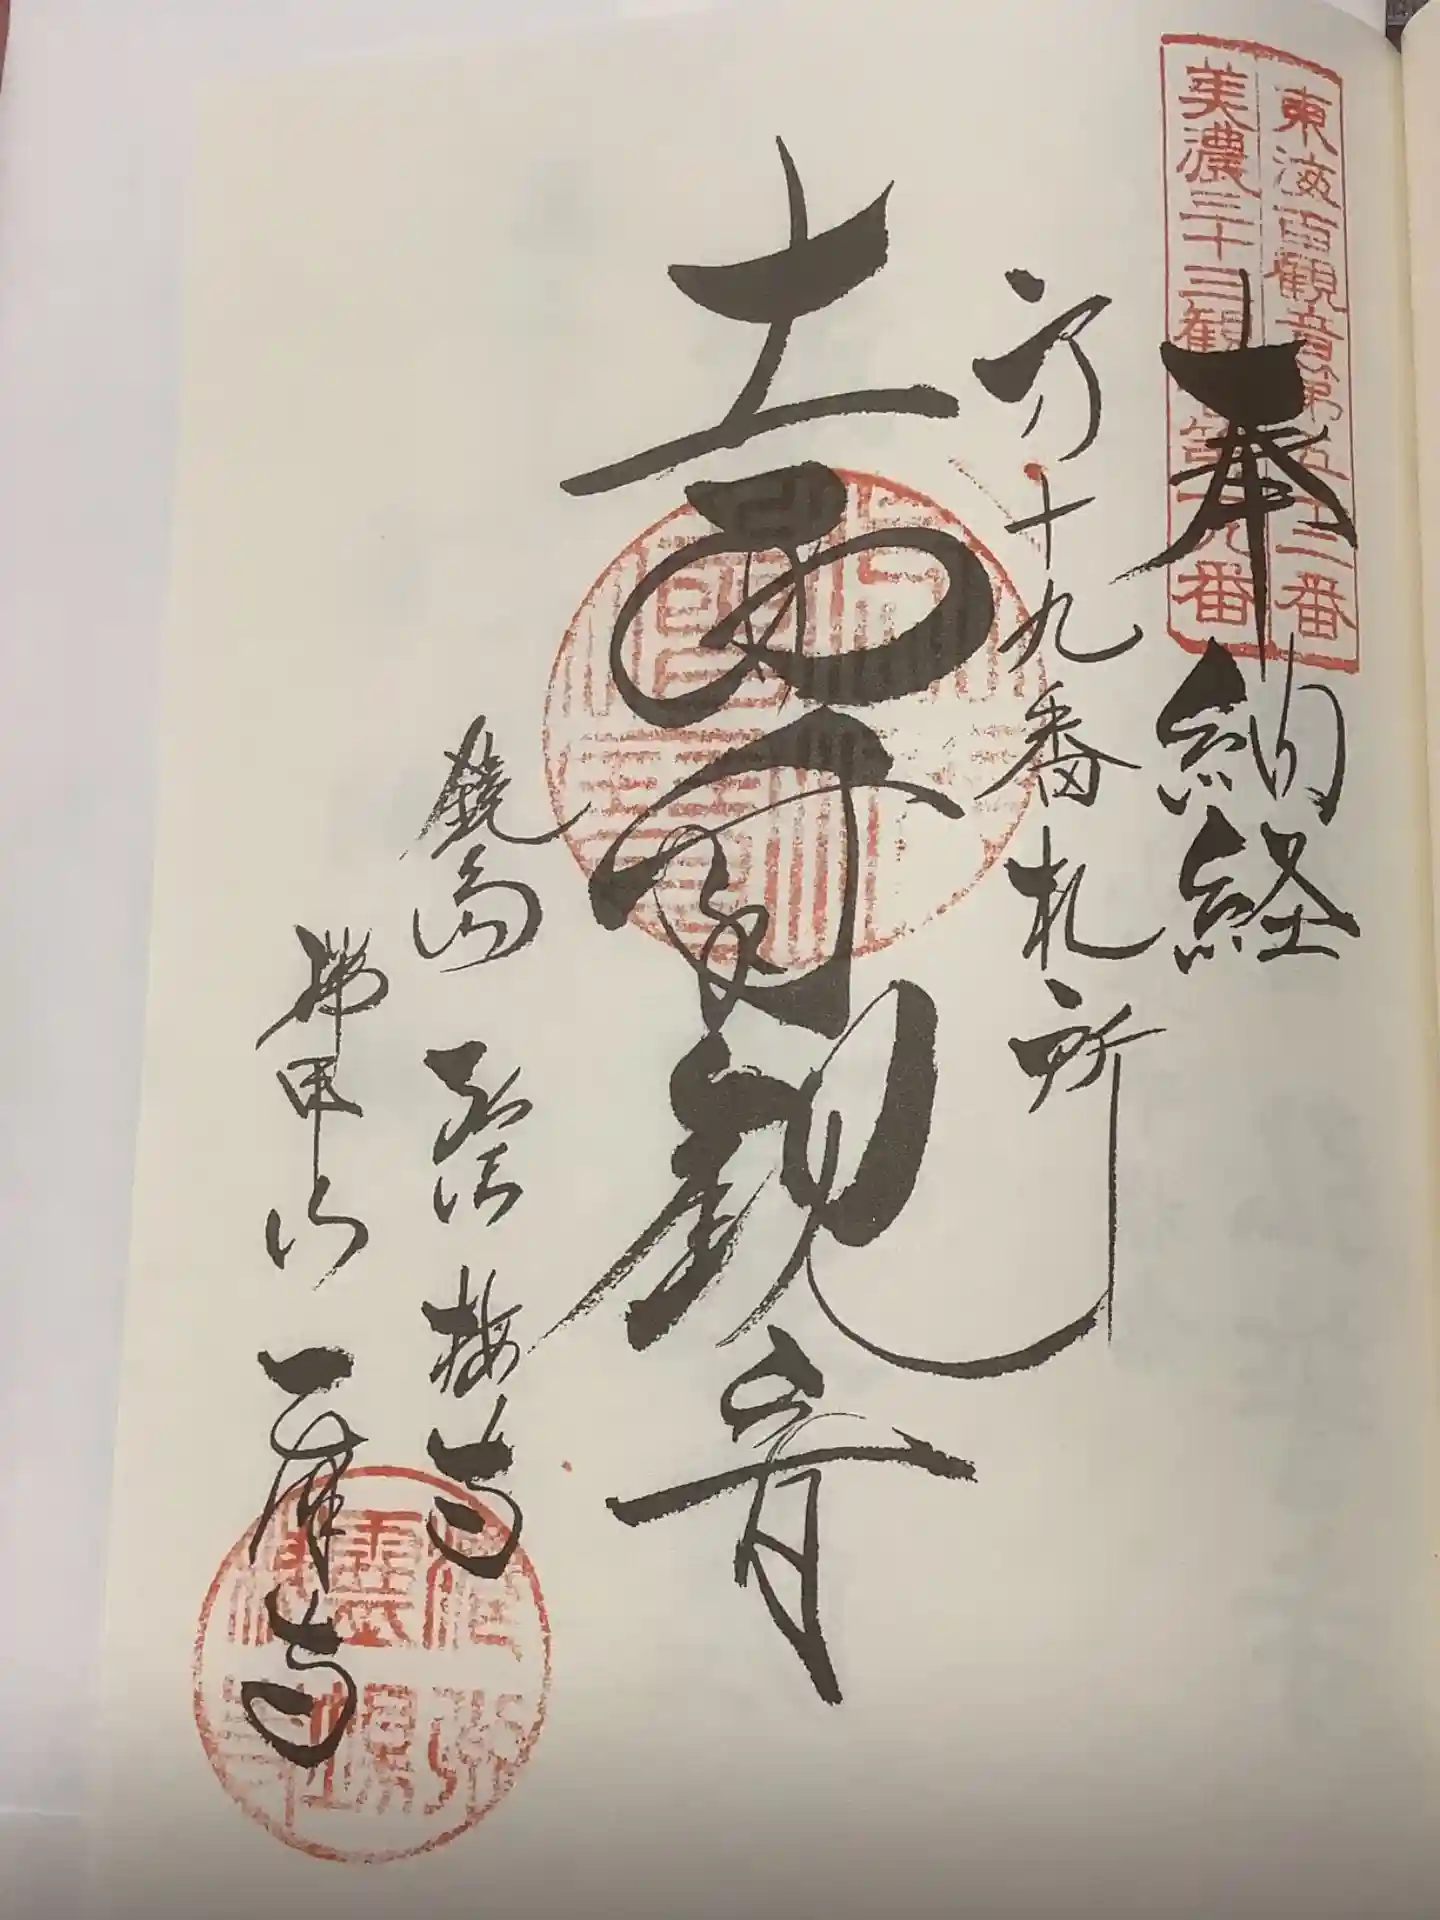 東海百観音第五十二番
美濃三十三観音第十九番
奉納経
才十九番札所
十一面千手観音
鏡島 弘法 梅寺
瑞甲山 乙津寺